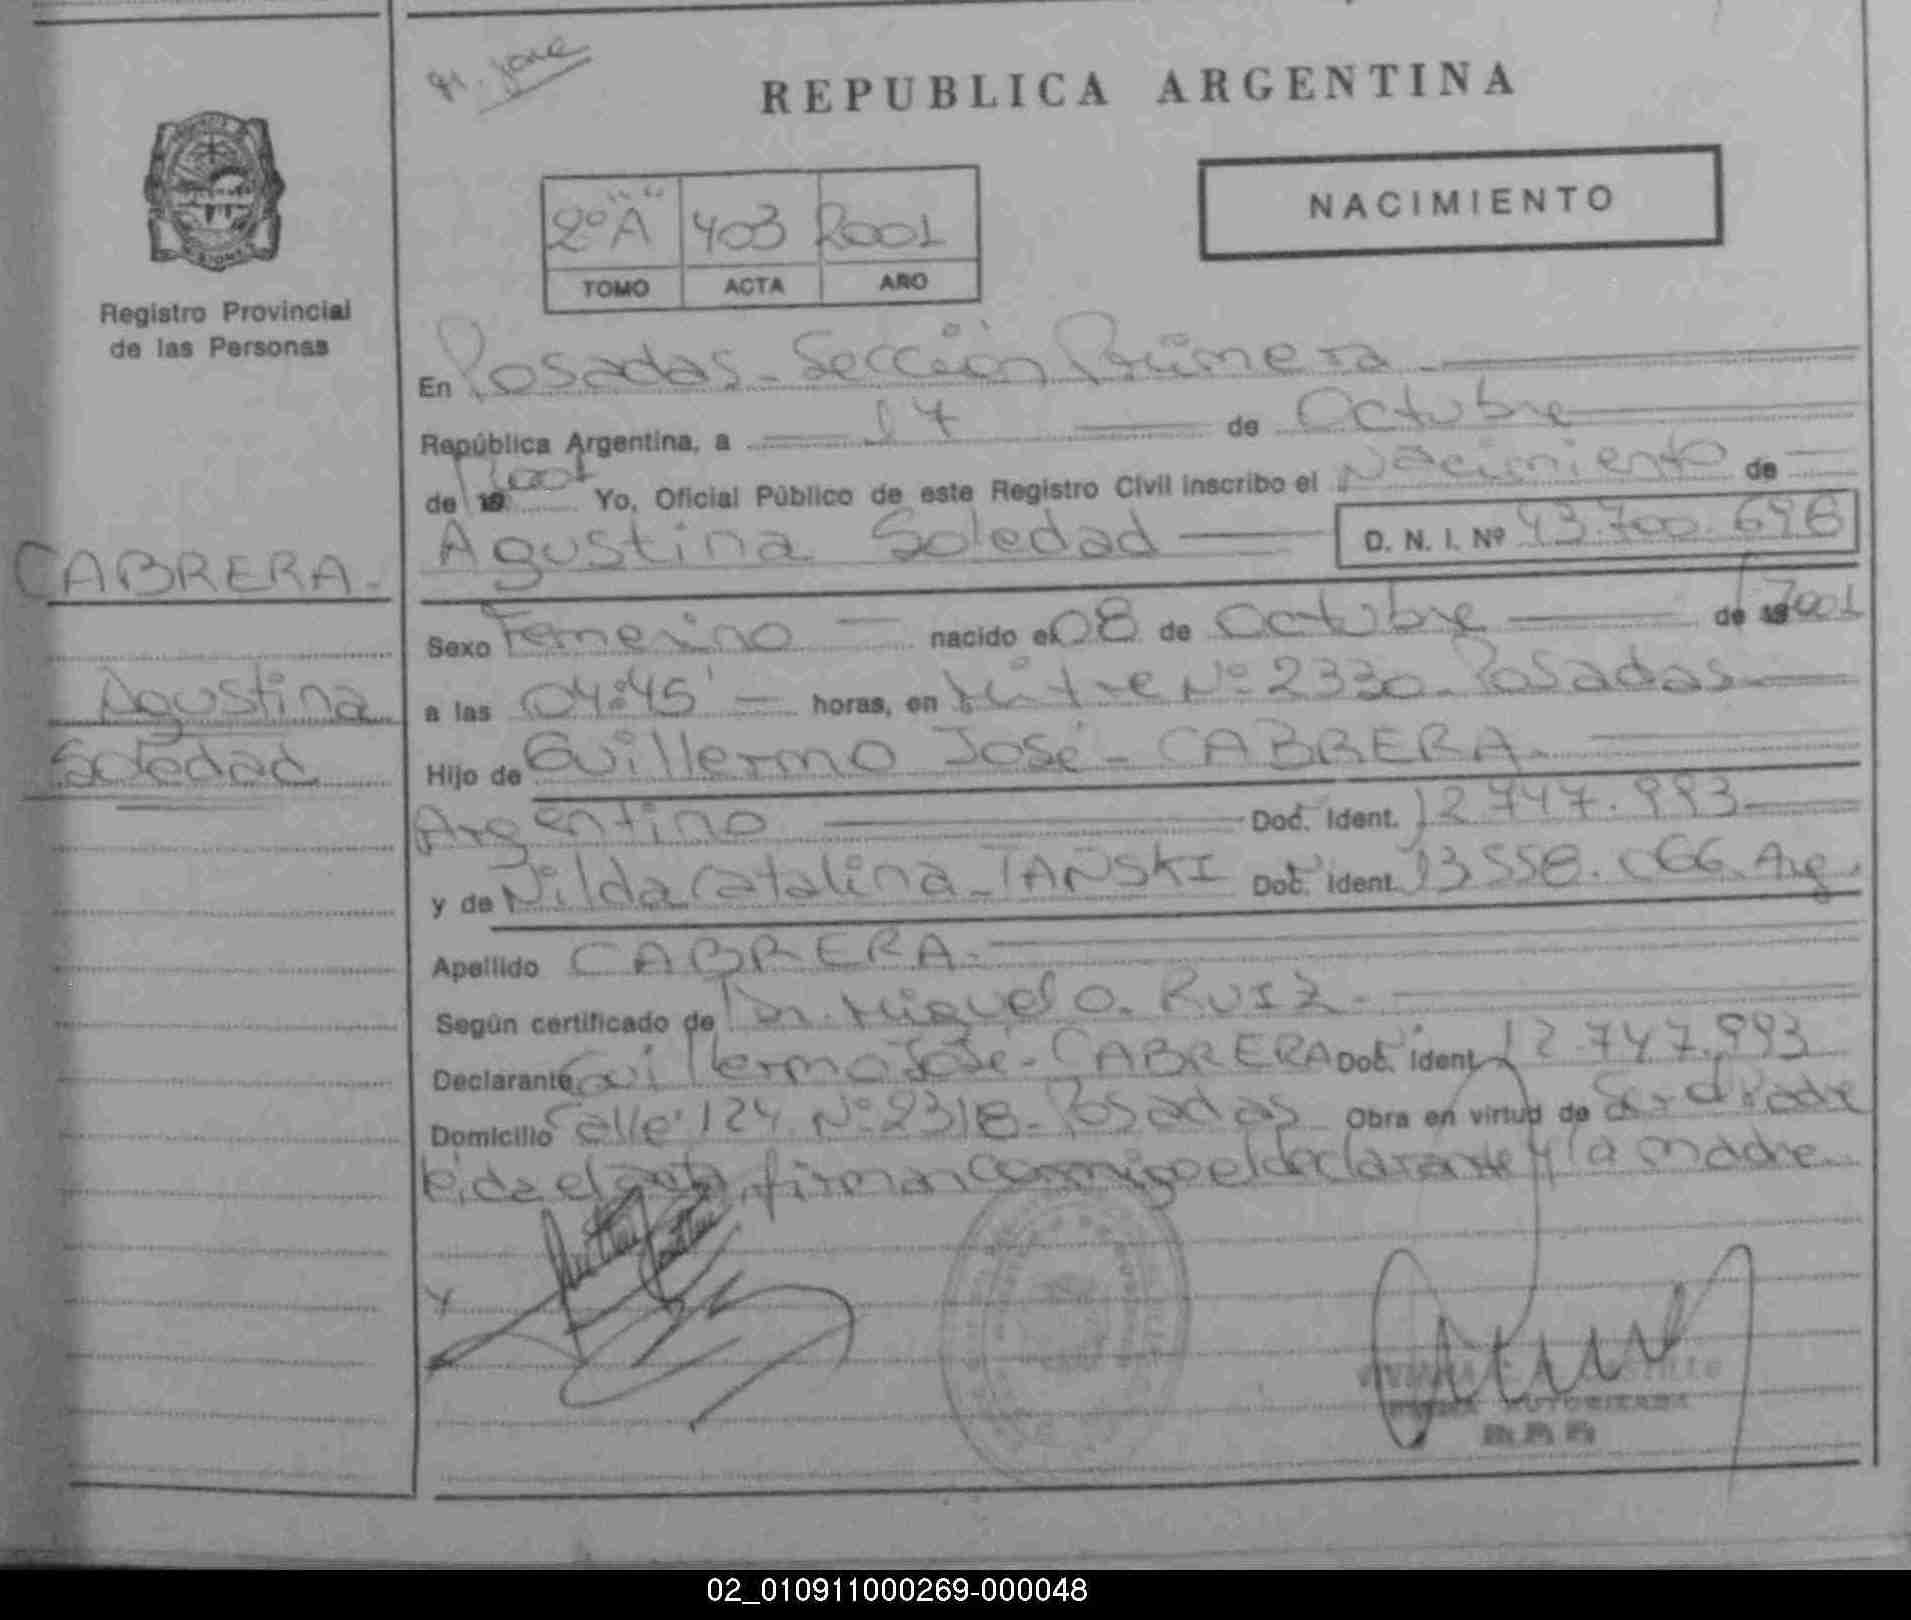 REPUBLICA ARGENTINA
NACIMIENTO
2º "A" 403 2001
TOMO ACTA AÑO
Registro Provincial
de las Personas
En Posadas - Sección Primera
República Argentina, a 17 de Octubre
de 19 2001 Yo, Oficial Público de este Registro Civil inscribo el Nacimiento de
Agustina Soledad D. N. I. Nº 43.700.698
CABRERA.
Agustina
Soledad
Sexo Femenino nacido el 08 de Octubre de 19 2001
a las 04:45' horas, en Mitre Nº 2330 - Posadas
Hijo de Guillermo José - CABRERA.
Argentino Doc. Ident. 12.747.993
y de Nilda Catalina - TAÑSKI Doc. Ident. 13.558.066. Arg.
Apellido CABRERA.
Según certificado de Dr. Miguel O. RUIZ.
Declarante Guillermo José - CABRERA Doc. Ident. 12.747.993
Domicilio Calle 124 Nº 2318 - Posadas Obra en virtud de Ser el Padre
leída el acta, firman conmigo el declarante y la madre.
AUTORIZADA
02_010911000269-000048